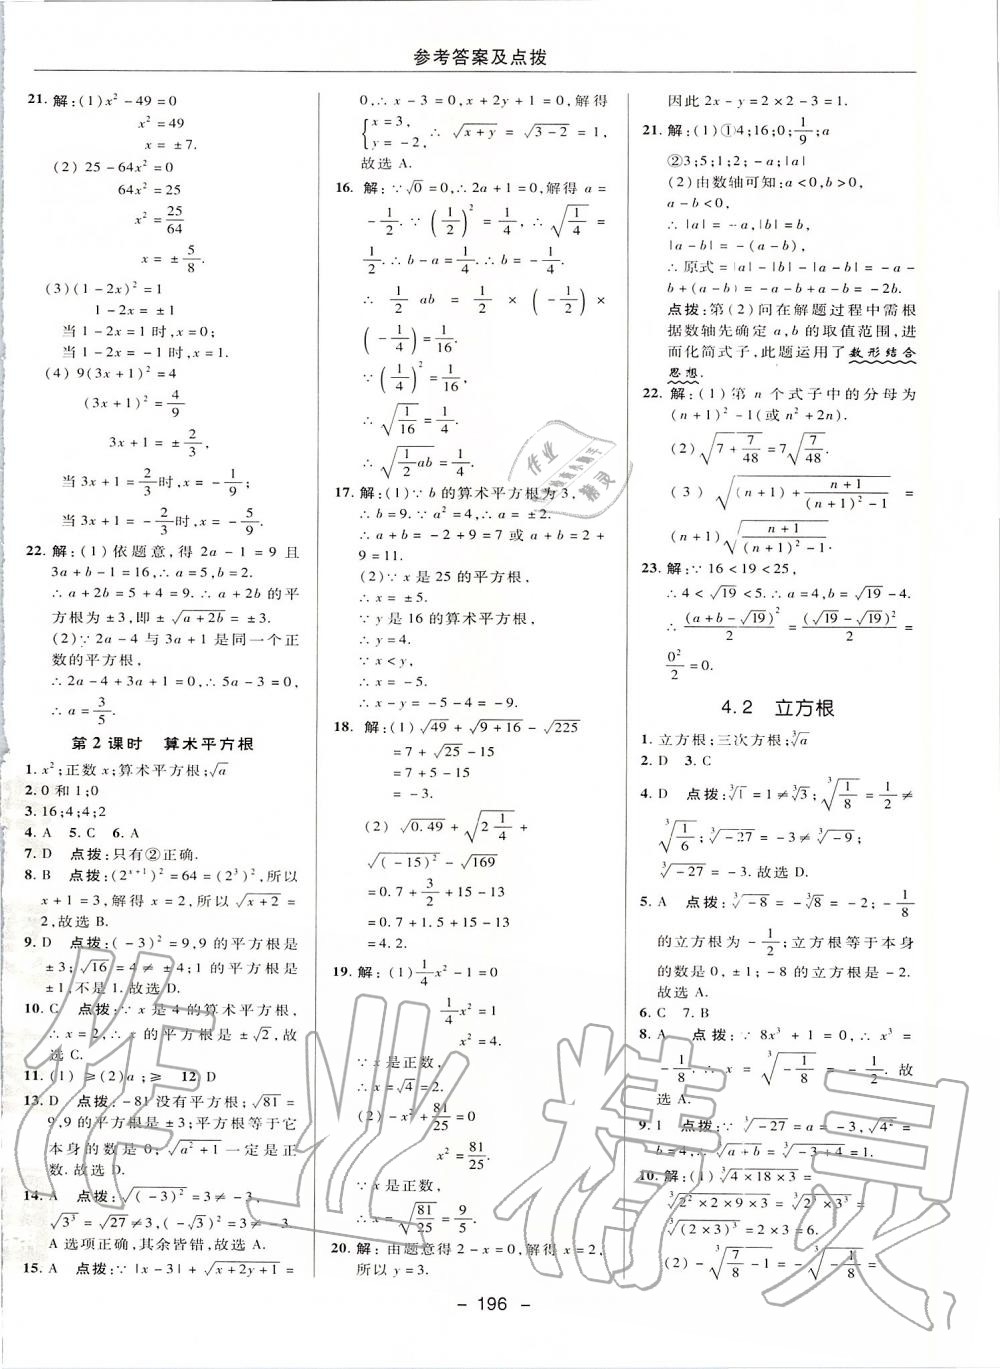 参考答案及点拨
21. 解:(1)x² - 49 = 0
x² = 49
x = ±7.
(2) 25 - 64x² = 0
64x² = 25
x² = 25/64
x = ±5/8.
(3)(1 - 2x)² = 1
1 - 2x = ±1
当 1 - 2x = 1 时, x = 0;
当 1 - 2x = -1 时, x = 1.
(4) 9(3x + 1)² = 4
(3x + 1)² = 4/9
3x + 1 = ±2/3,
当 3x + 1 = 2/3 时, x = -1/9;
当 3x + 1 = -2/3 时, x = -5/9.
22. 解:(1) 依题意,得 2a - 1 = 9 且
3a + b - 1 = 16, ∴ a = 5, b = 2.
∴ a + 2b = 5 + 4 = 9. ∴ a + 2b 的平
方根为 ±3, 即 ±√(a + 2b) = ±3.
(2)∵ 2a - 4 与 3a + 1 是同一个正
数的平方根,
∴ 2a - 4 + 3a + 1 = 0, ∴ 5a - 3 = 0,
∴ a = 3/5.
第 2 课时 算术平方根
1. x²;正数 x;算术平方根;√a
2. 0 和 1;0
3. 16;4;4;2
4. A 5. C 6. A
7. D 点拨:只有②正确.
8. B 点拨:(2ˣ⁺¹)² = 64 = (2³)²,所以
x + 1 = 3,解得 x = 2,所以 √(x + 2) =
2,故选 B.
9. D 点拨:(-3)² = 9,9 的平方根是
±3;√16 = 4 ≠ ±4;1 的平方根是
±1,不是 1.故选 D.
10. C 点拨:∵ x 是 4 的算术平方根,
∴ x = 2, ∴ x 的平方根是 ±√2,故
选 C.
11. (1) ≥ (2)a;≥ 12. D
13. D 点拨:-81 没有平方根;√81 =
9,9 的平方根是 ±3;平方根等于它
本身的数是 0;√(a² + 1) 一定是正
数.故选 D.
14. A 点拨:√(-3)² = 3 ≠ -3,
√3³ = √27 ≠ 3,(-√3)² = 3 ≠ -3.
A 选项正确,其余皆错,故选 A.
15. A 点拨:∵ |x - 3| + √(x + 2y + 1) =
0, ∴ x - 3 = 0, x + 2y + 1 = 0, 解得
{x = 3, y = -2, ∴ √(x + y) = √(3 - 2) = 1,
故选 A.
16. 解:∵ √0 = 0, ∴ 2a + 1 = 0,解得 a =
-1/2. ∵ (1/2)² = 1/4, ∴ √(1/4) =
1/2. ∴ b - a = 1/4. ∴ b = -1/4.
∴ 1/2 ab = 1/2 × (-1/2) ×
(-1/4) = 1/16.
∵ (1/4)² = 1/16,
∴ √(1/16) = 1/4.
∴ √(1/2 ab) = 1/4.
17. 解:(1)∵ b 的算术平方根为 3,
∴ b = 9. ∵ a² = 4, ∴ a = ±2.
∴ a + b = -2 + 9 = 7 或 a + b = 2 +
9 = 11.
(2)∵ x 是 25 的平方根,
∴ x = ±5.
∵ y 是 16 的算术平方根,
∴ y = 4.
∵ x < y,
∴ x = -5.
∴ x - y = -5 - 4 = -9.
18. 解:(1)√49 + √(9 + 16) - √225
= 7 + √25 - 15
= 7 + 5 - 15
= -3.
(2) √0.49 + √(2 1/4) +
√(-15)² - √169
= 0.7 + 3/2 + 15 - 13
= 0.7 + 1.5 + 15 - 13
= 4.2.
19. 解:(1) 1/4 x² - 1 = 0
1/4 x² = 1
x² = 4.
∵ x 是正数,
∴ x = √4 = 2.
(2) -x² + 81/25 = 0
x² = 81/25.
∵ x 是正数,
∴ x = √(81/25) = 9/5.
20. 解:由题意得 2 - x = 0,解得 x = 2,
所以 y = 3.
因此 2x - y = 2 × 2 - 3 = 1.
21. 解:(1)①4;16;0;1/9;a
②3;5;1;2;-a;|a|
(2)由数轴可知:a < 0, b > 0,
a - b < 0,
∴ |a| = -a, |b| = b,
|a - b| = -(a - b),
∴ 原式 = |a| - |b| - |a - b| = -a -
b + (a - b) = -a - b + a - b = -2b.
点拨:第(2)问在解题过程中需根
据数轴先确定 a, b 的取值范围,进
而化简式子,此题运用了数形结合
思想.
22. 解:(1) 第 n 个式子中的分母为
(n + 1)² - 1(或 n² + 2n).
(2)√(7 + 7/48) = 7√(7/48).
(3) √((n + 1) + (n + 1)/((n + 1)² - 1)) =
(n + 1)√((n + 1)/((n + 1)² - 1)).
23. 解:∵ 16 < 19 < 25,
∴ 4 < √19 < 5. ∴ a = 4, b = √19 - 4.
∴ (a + b - √19)²/2 = (√19 - √19)²/2 =
0²/2 = 0.
4.2 立方根
1. 立方根;三次方根;∛a
2. D 3. C
4. D 点拨:∛1 = 1 ≠ ∛3;∛(1/8) = 1/2 ≠
∛(1/6);∛-27 = -3 ≠ ∛-9;
∛-27 = -3.故选 D.
5. A 点拨:∛-8 = -∛8 = -2,-1/8
的立方根为 -1/2;立方根等于本身
的数是 0, ±1;-8 的立方根是 -2.
故选 A.
6. C 7. B
8. A 点拨:∵ 8x³ + 1 = 0, ∴ x³ =
-1/8. ∴ x = ∛(-1/8) = -1/2. 故
选 A.
9. 1 点拨:∵ ∛-27 = a = -3, √4² =
b = 4, ∴ ∛(a + b) = ∛(-3 + 4) = 1.
10. 解:(1)∛(4 × 18 × 3) =
∛(2² × 2 × 9 × 3) = ∛(2³ × 3³) =
∛(2 × 3)³ = 2 × 3 = 6.
(2) -∛(7/8 - 1) = -∛(-1/8) =
- 196 -
作业精灵
作业
精灵